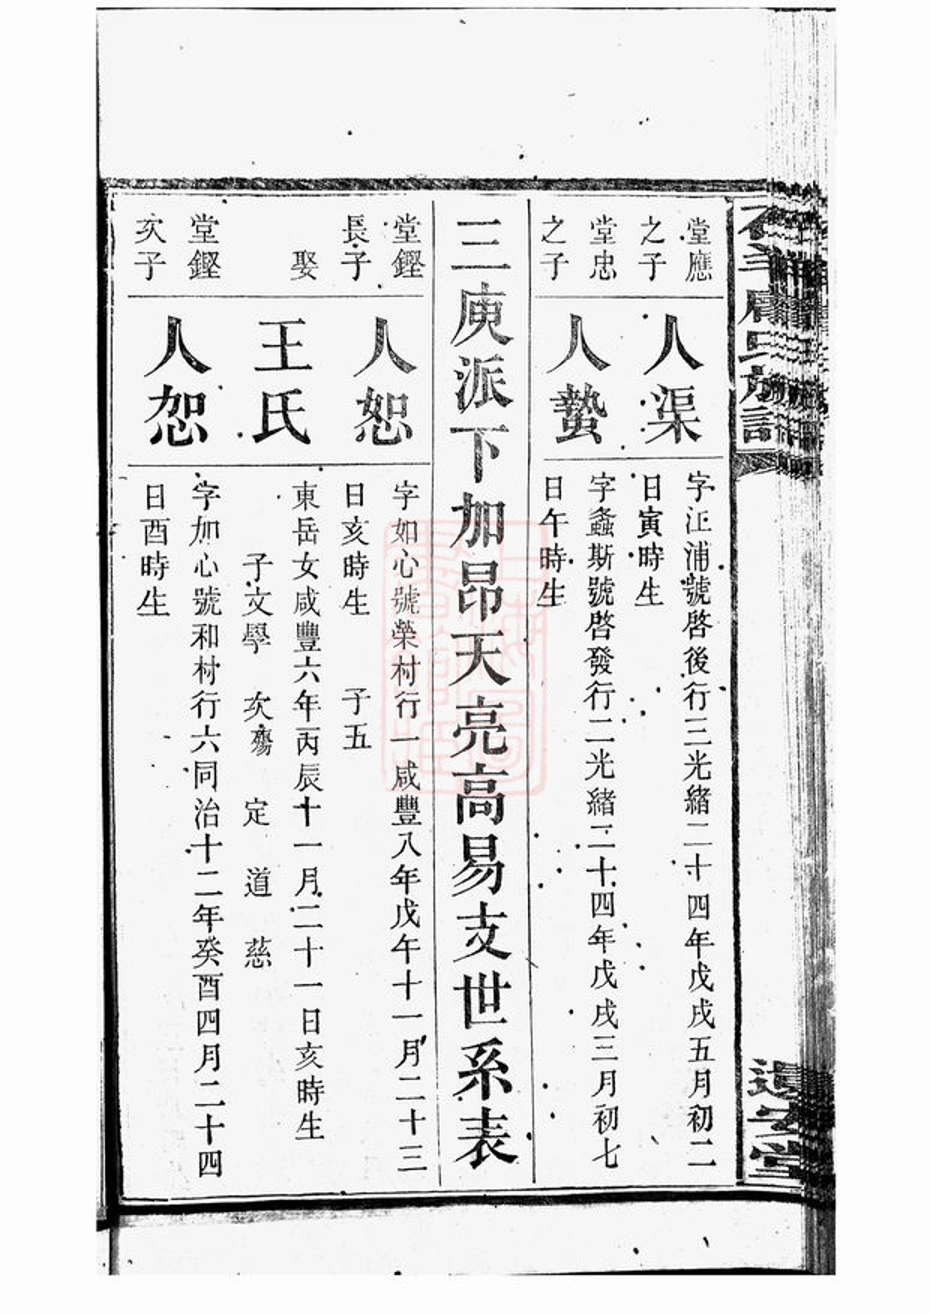 堂應
之子
人渠
字江浦號啓後行三光緒二十四年戊戌五月初二
日寅時生
堂忠
之子
人蟄
字螽斯號啓發行二光緒二十四年戊戌三月初七
日午時生
三庚派下加昂天亮高易支世系表
堂鏗
長子
人恕
字如心號榮村行一咸豐八年戊午十一月二十三
日亥時生 子五
娶
王氏
東岳女咸豐六年丙辰十一月二十一日亥時生
子文學 次 定 道 慈
堂鏗
次子
人恕
字加心號和村行六同治十二年癸酉四月二十四
日酉時生
遺安堂